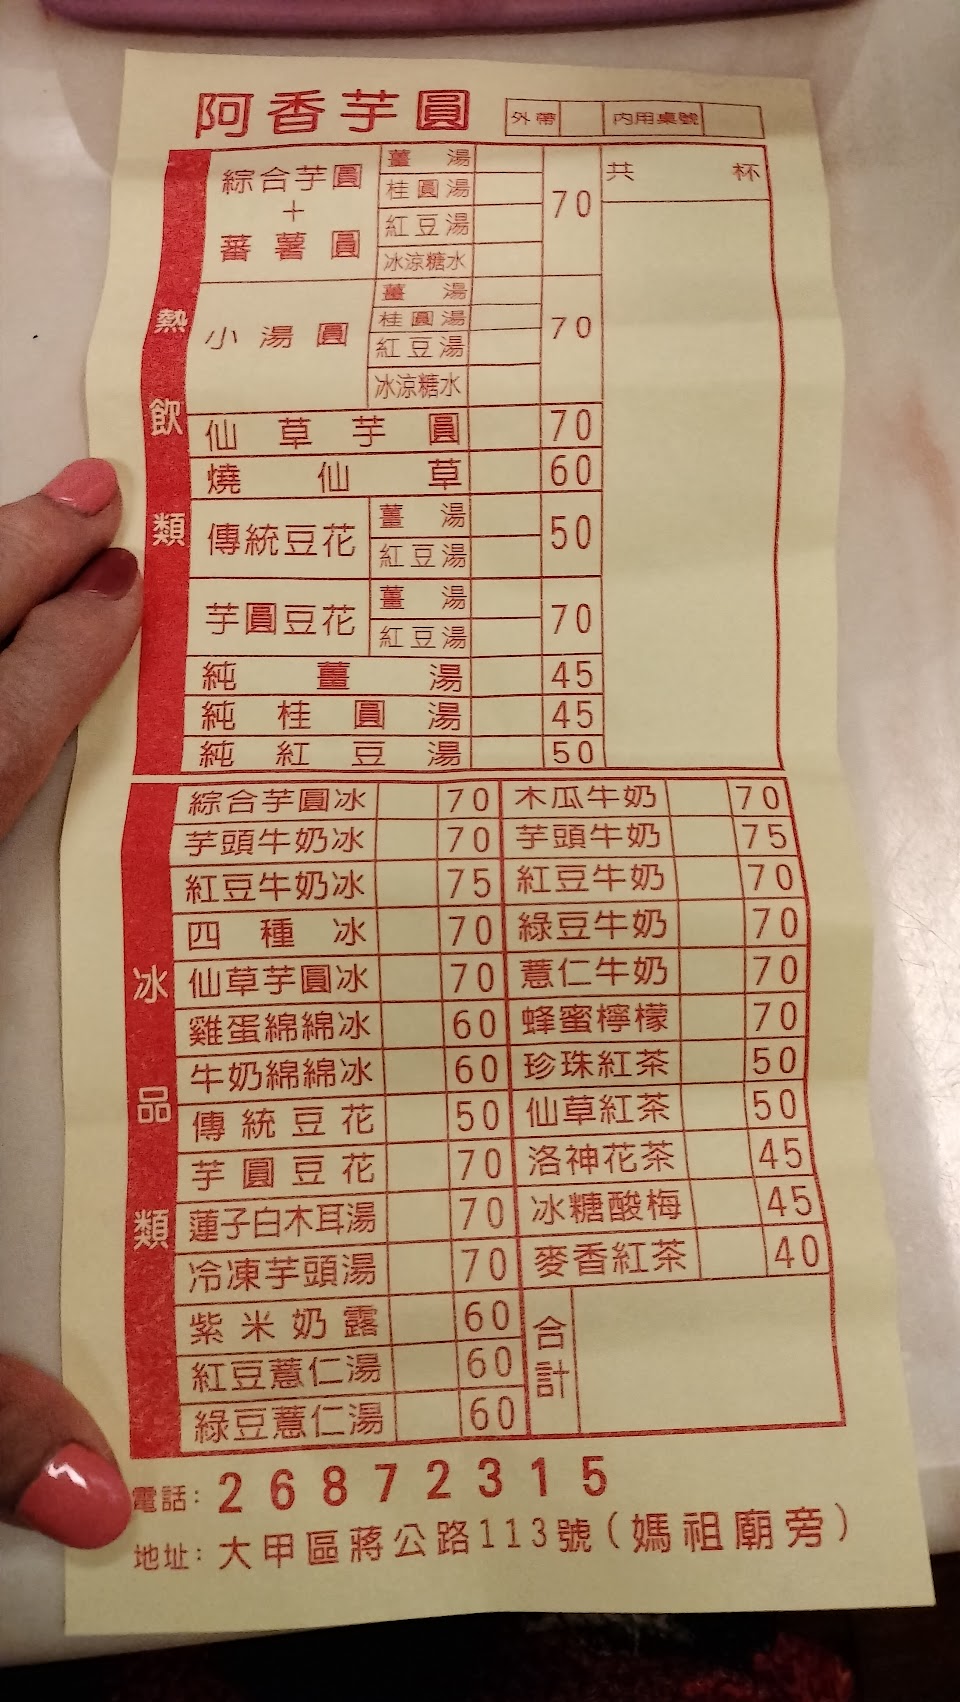 阿香芋圓 外帶 內用桌號
熱飲類
共 杯
綜合芋圓+蕃薯圓 薑湯 70
桂圓湯
紅豆湯
冰涼糖水
小湯圓 薑湯 70
桂圓湯
紅豆湯
冰涼糖水
仙草芋圓 70
燒仙草 60
傳統豆花 薑湯 50
紅豆湯
芋圓豆花 薑湯 70
紅豆湯
純薑湯 45
純桂圓湯 45
純紅豆湯 50
冰品類
綜合芋圓冰 70 木瓜牛奶 70
芋頭牛奶冰 70 芋頭牛奶 75
紅豆牛奶冰 75 紅豆牛奶 70
四種冰 70 綠豆牛奶 70
仙草芋圓冰 70 薏仁牛奶 70
雞蛋綿綿冰 60 蜂蜜檸檬 70
牛奶綿綿冰 60 珍珠紅茶 50
傳統豆花 50 仙草紅茶 50
芋圓豆花 70 洛神花茶 45
蓮子白木耳湯 70 冰糖酸梅 45
冷凍芋頭湯 70 麥香紅茶 40
紫米奶露 60 合計
紅豆薏仁湯 60
綠豆薏仁湯 60
電話：26872315
地址：大甲區蔣公路113號（媽祖廟旁）